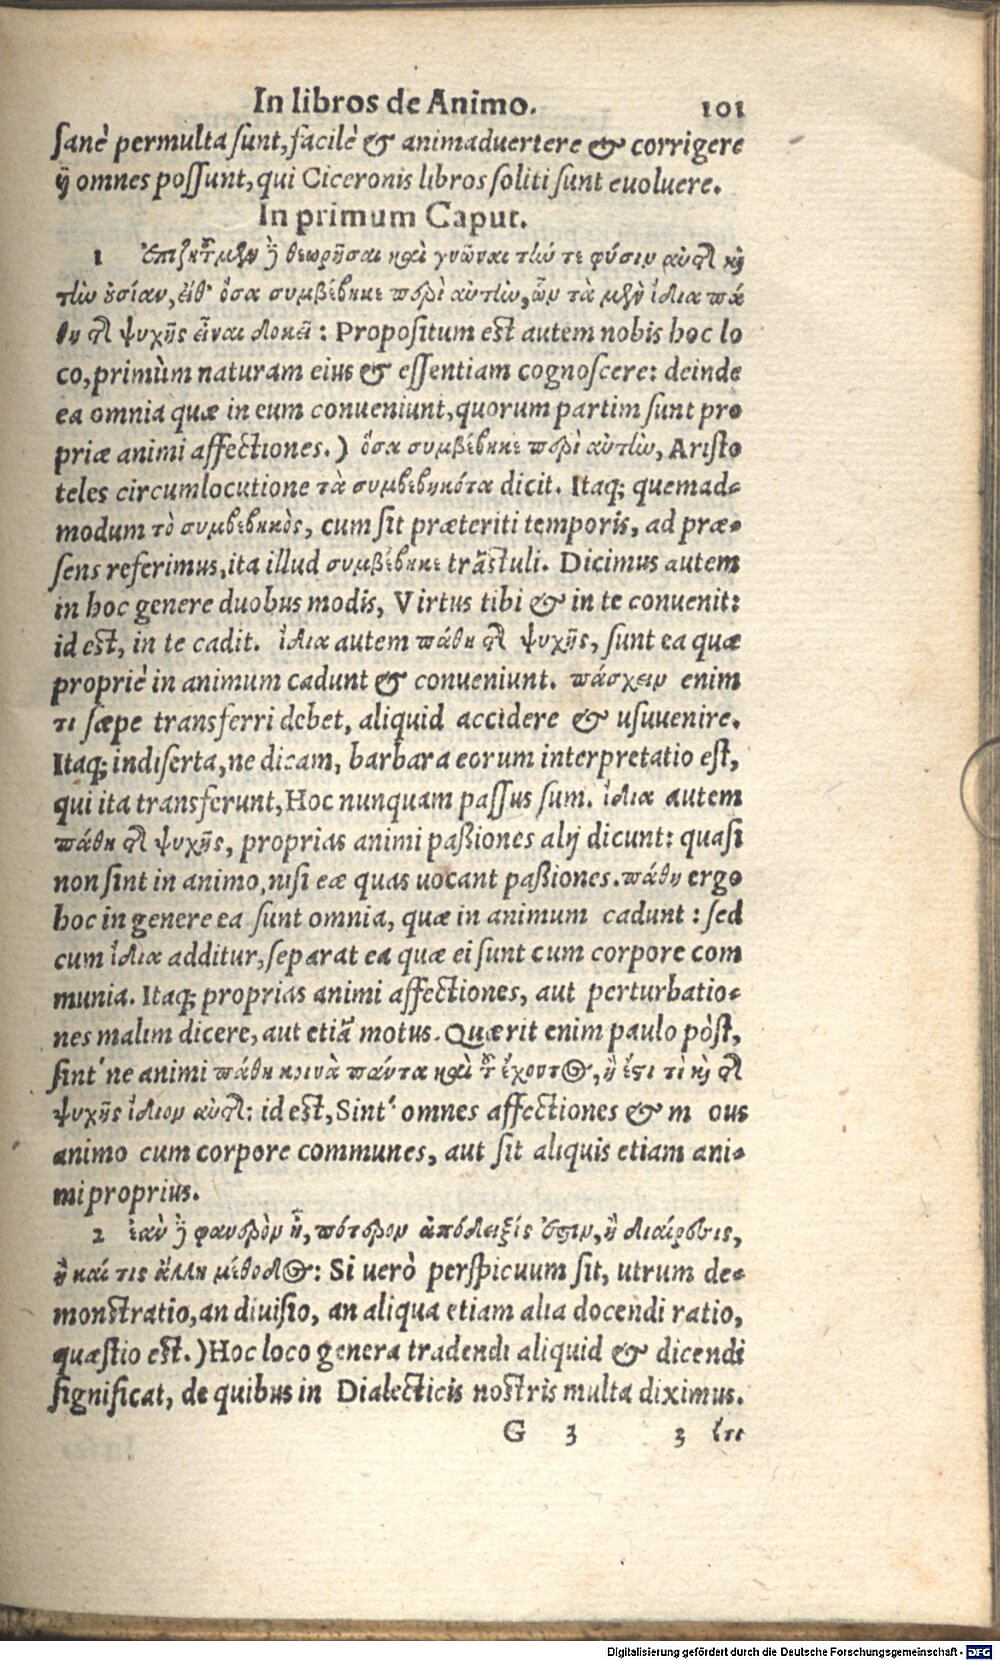 In libros de Animo. 101
sanè permulta sunt, facilè & animaduertere & corrigere
ij omnes possunt, qui Ciceronis libros soliti sunt euoluere.
In primum Caput.
1 ἐπιζητοῦμεν δὲ θεωρῆσαι καὶ γνῶναι τήν τε φύσιν αὐτῆς καὶ
τὴν οὐσίαν, εἶθ' ὅσα συμβέβηκε περὶ αὐτὴν, ὧν τὰ μὲν ἴδια πά
θη τῆς ψυχῆς εἶναι δοκεῖ: Propositum est autem nobis hoc lo
co, primùm naturam eius & essentiam cognoscere: deinde
ea omnia quæ in eum conueniunt, quorum partim sunt pro
priæ animi affectiones.) ὅσα συμβέβηκε περὶ αὐτὴν, Aristo
teles circumlocutione τὰ συμβεβηκότα dicit. Itaq; quemad-
modum τὸ συμβεβηκὸς, cum sit præteriti temporis, ad præ-
sens referimus, ita illud συμβέβηκε trãstuli. Dicimus autem
in hoc genere duobus modis, Virtus tibi & in te conuenit:
id est, in te cadit. ἴδια autem πάθη τῆς ψυχῆς, sunt ea quæ
propriè in animum cadunt & conueniunt. πάσχειν enim
τι sæpe transferri debet, aliquid accidere & usuuenire.
Itaq; indiserta, ne dicam, barbara eorum interpretatio est,
qui ita transferunt, Hoc nunquam passus sum. ἴδια autem
πάθη τῆς ψυχῆς, proprias animi paßiones alij dicunt: quasi
non sint in animo, nisi eæ quas uocant paßiones. πάθη ergo
hoc in genere ea sunt omnia, quæ in animum cadunt: sed
cum ἴδια additur, separat ea quæ ei sunt cum corpore com
munia. Itaq; proprias animi affectiones, aut perturbatio-
nes malim dicere, aut etiã motus. Quærit enim paulo pòst,
sint' ne animi πάθη κοινὰ πάντα καὶ τοῦ ἔχοντος, ἢ ἔστι τὶ καὶ τῆς
ψυχῆς ἴδιον αὐτῆς: id est, Sint' omnes affectiones & m ous
animo cum corpore communes, aut sit aliquis etiam ani-
mi proprius.
2 ἐὰν δὲ φανερὸν ᾖ, πότερον ἀπόδειξίς ἐστιν, ἢ διαίρεσις,
ἢ καί τις ἄλλη μέθοδος: Si uerò perspicuum sit, utrum de-
monstratio, an diuisio, an aliqua etiam alia docendi ratio,
quæstio est.) Hoc loco genera tradendi aliquid & dicendi
significat, de quibus in Dialecticis nostris multa diximus.
G 3 3 ἔτι
Digitalisierung gefördert durch die Deutsche Forschungsgemeinschaft - DFG